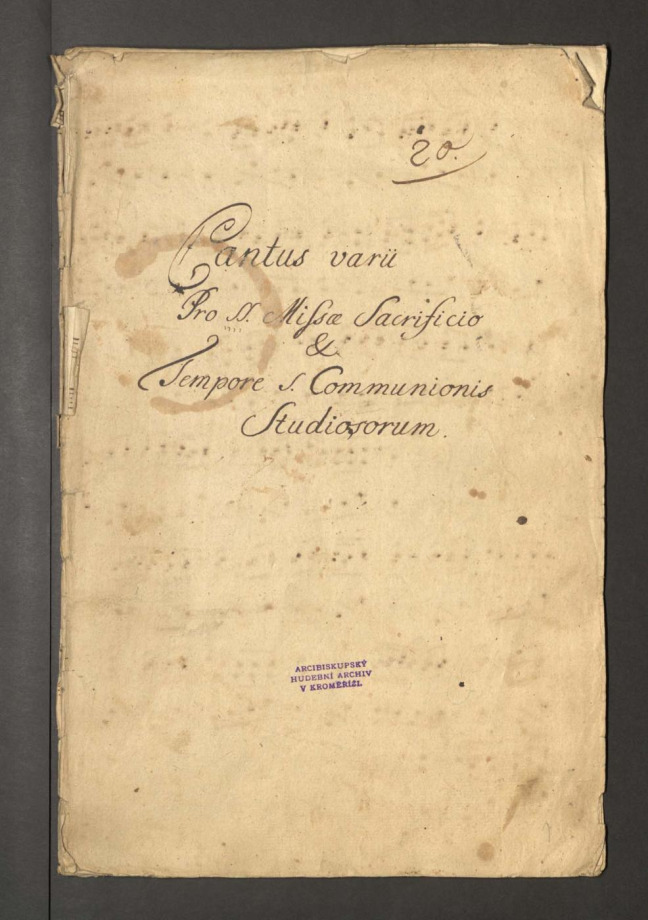 20.
Cantus varii
Pro SS. Missæ Sacrificio
&
Tempore S. Communionis
Studiosorum.
ARCIBISKUPSKÝ
HUDEBNÍ ARCHIV
V KROMĚŘÍŽI.